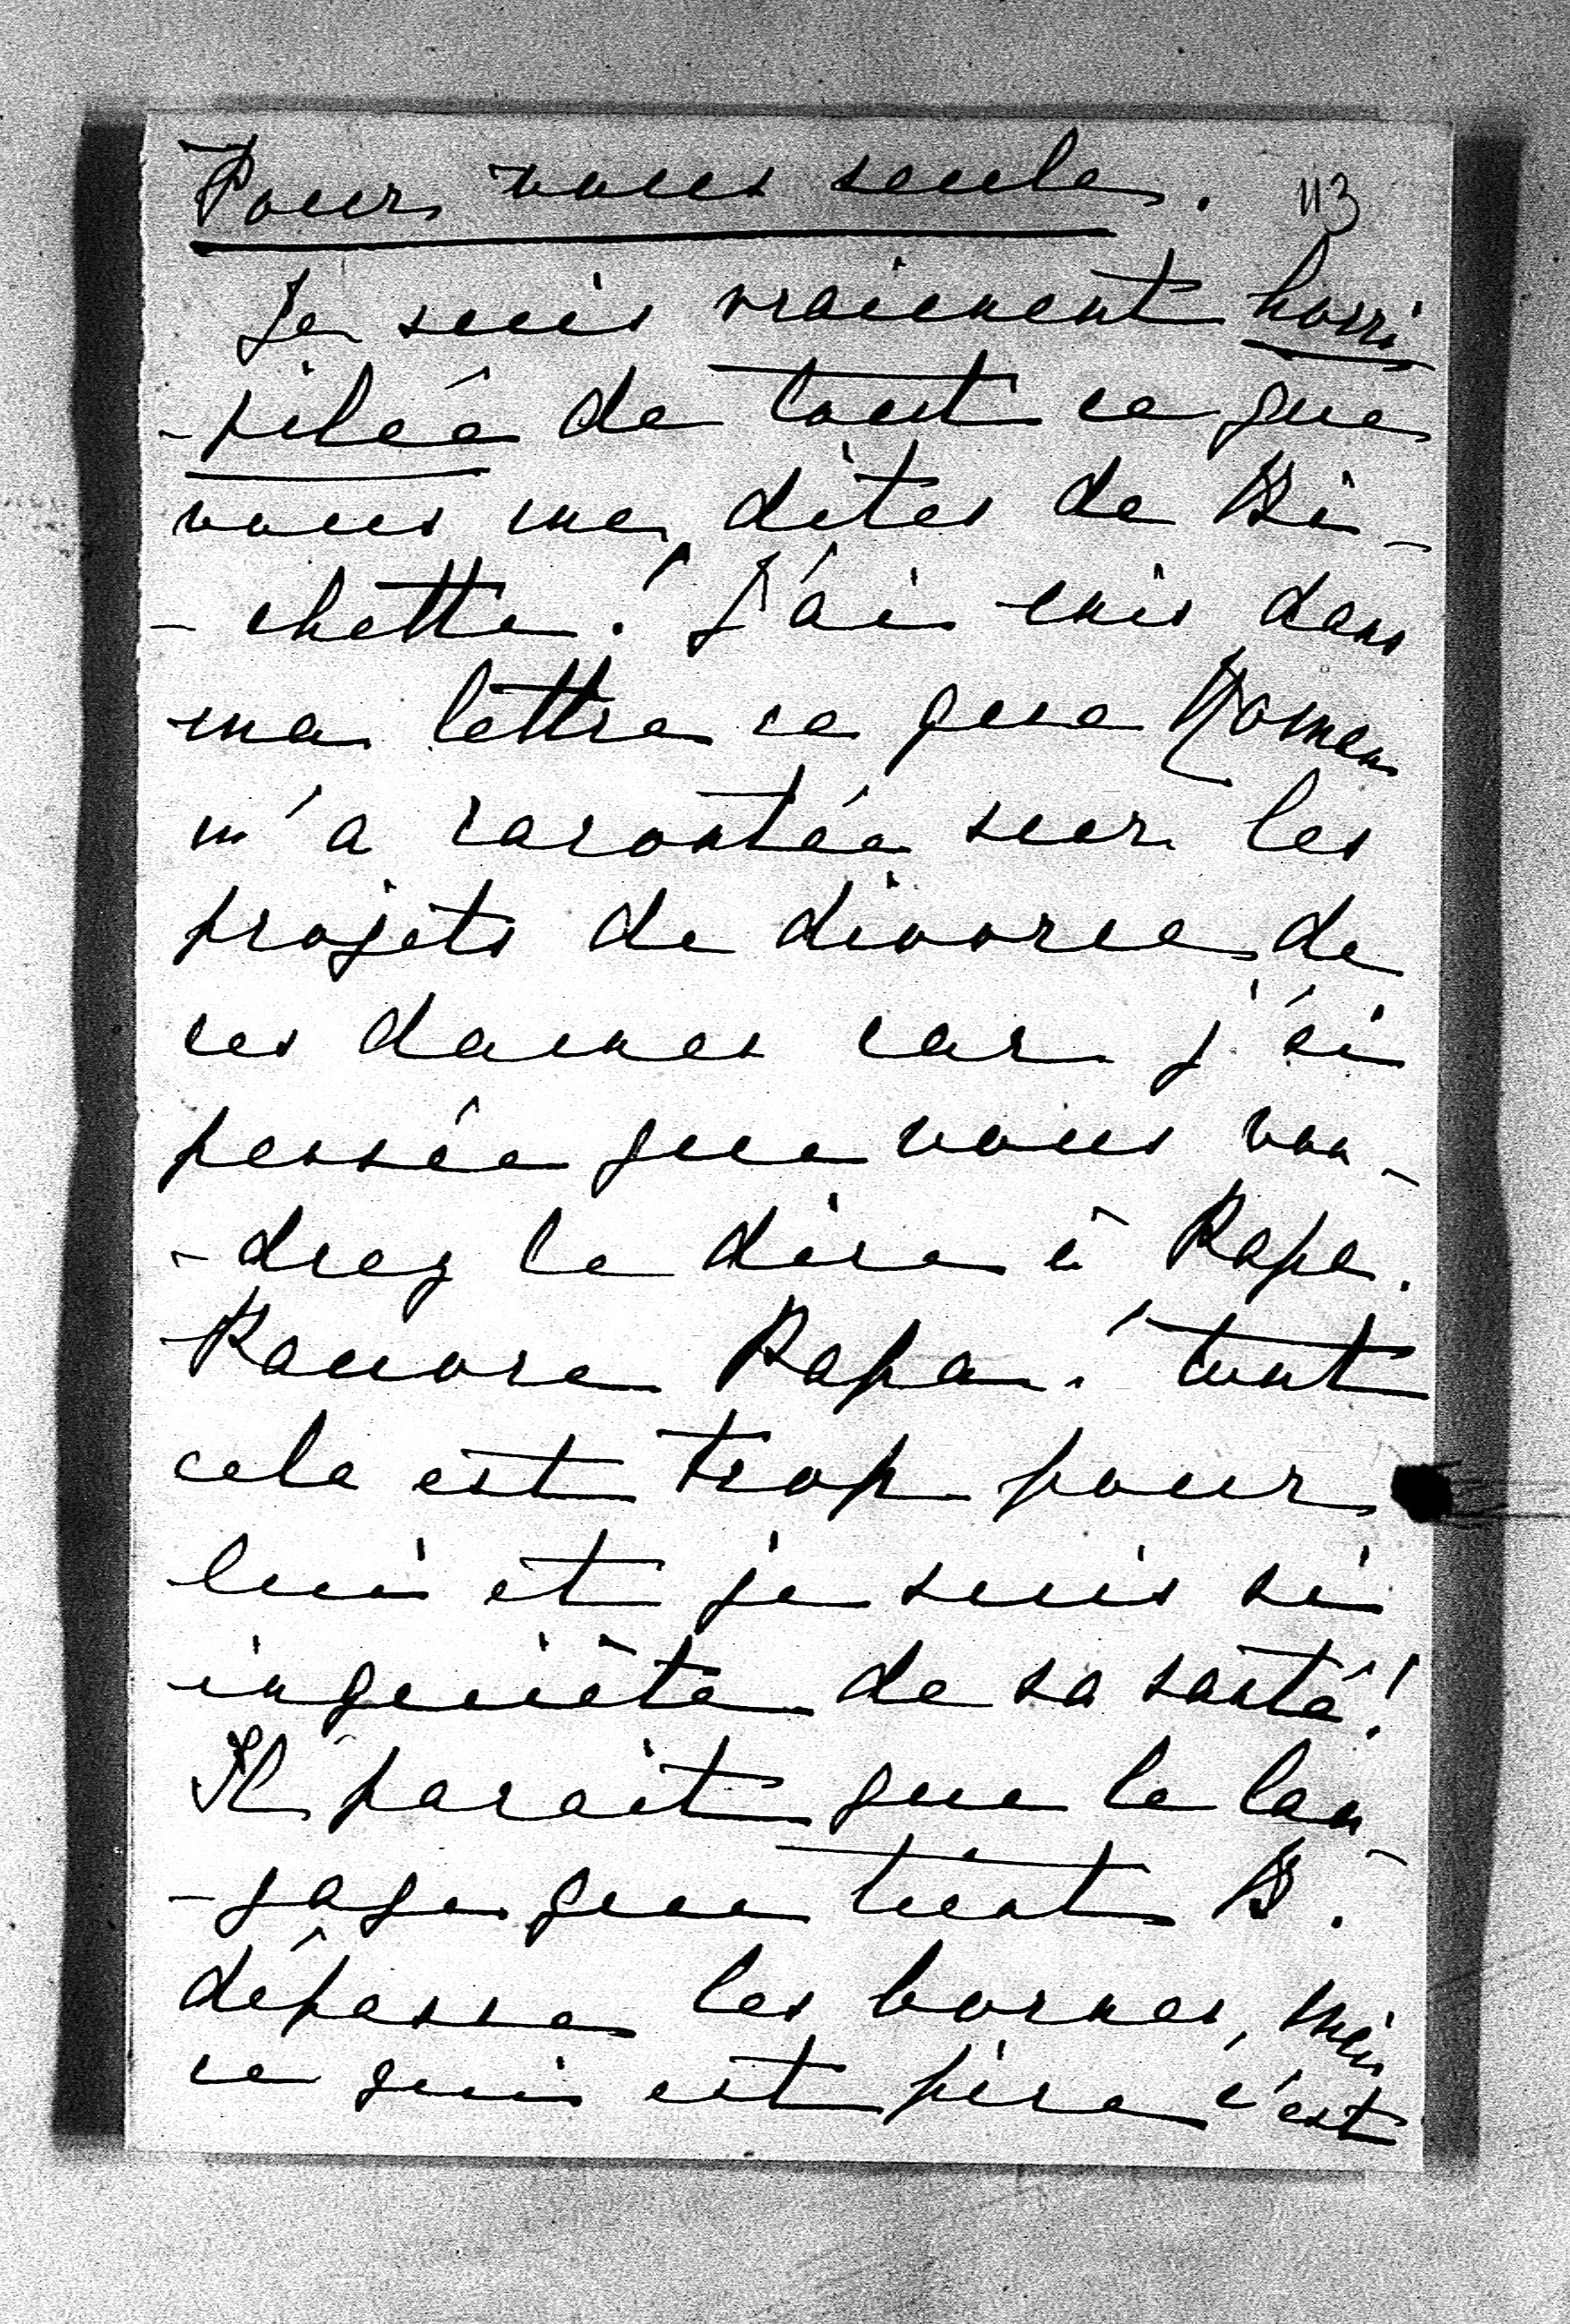 Pour vous seule. 113
Je suis vraiment horri
-pilée de tout ce que
vous me dites de Bi-
-chette! J'ai mis dans
ma lettre ce que Roman
m'a racontée sur les
projets de divorce de
ces dames car j'ai
pensée que vous vou-
-drez le dire à Papa.
Pauvre Papa! tout
cela est trop pour
lui et je suis si
inquiète de sa santé!
Il parait que le lan-
-gage que tient B.
dépasse les bornes, mais
ce qui est pire c'est